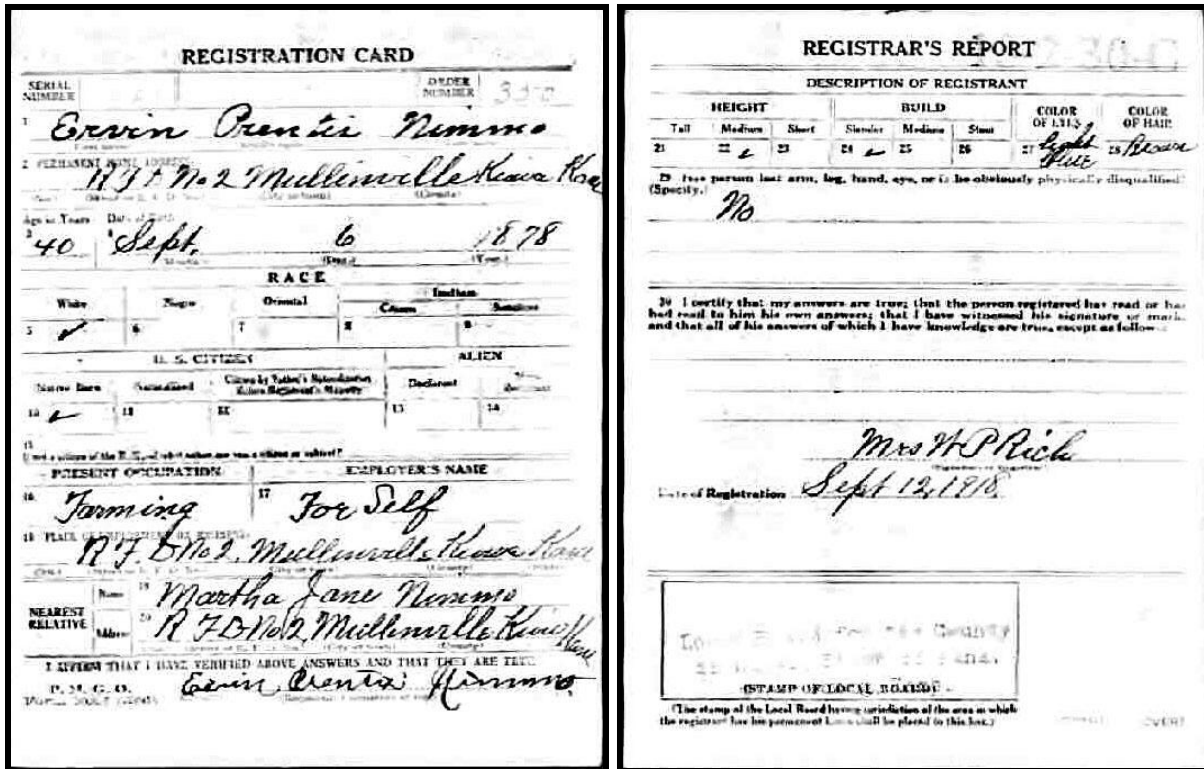 REGISTRATION CARD
SERIAL NUMBER
ORDER NUMBER
1 Ervin Prentis Nimmo
2 PERMANENT HOME ADDRESS
R F D No 2 Mullinville Kiowa Kans
Age in Years Date of Birth
3 40 4 Sept. 6 1878
(Month) (Day) (Year)
RACE
White Negro Oriental Indian
Citizen
5 ✓ 6 7 8 9
U. S. CITIZEN ALIEN
Native Born Naturalized Citizen by Father's Naturalization Before Registrant's Majority Declarant
10 ✓ 11 12 13 14
15
If not a citizen of the U. S., of what nation are you a citizen or subject?
PRESENT OCCUPATION EMPLOYER'S NAME
16 Farming 17 For Self
18 PLACE OF EMPLOYMENT OR BUSINESS
R F D No 2, Mullinville Kiowa Kans
NEAREST RELATIVE
Name 19 Martha Jane Nimmo
Address 20 R F D No 2 Mullinville Kiowa Kans
I AFFIRM THAT I HAVE VERIFIED ABOVE ANSWERS AND THAT THEY ARE TRUE
P. M. G. O.
Ervin Prentis Nimmo
REGISTRAR'S REPORT
DESCRIPTION OF REGISTRANT
HEIGHT BUILD COLOR OF EYES COLOR OF HAIR
Tall Medium Short Slender Medium Stout
21 22 ✓ 23 24 ✓ 25 26 27 Light Blue 28 Brown
29 Has person lost arm, leg, hand, eye, or is he obviously physically disqualified?
(Specify.)
No
30 I certify that my answers are true; that the person registered has read or has
had read to him his own answers; that I have witnessed his signature or mark,
and that all of his answers of which I have knowledge are true, except as follows:
Mrs W P Rich
(Signature of Registrar)
Date of Registration Sept 12, 1918
Local Board County
(STAMP OF LOCAL BOARD)
(The stamp of the Local Board having jurisdiction of the area in which
the registrant has his permanent home shall be placed in this box.)